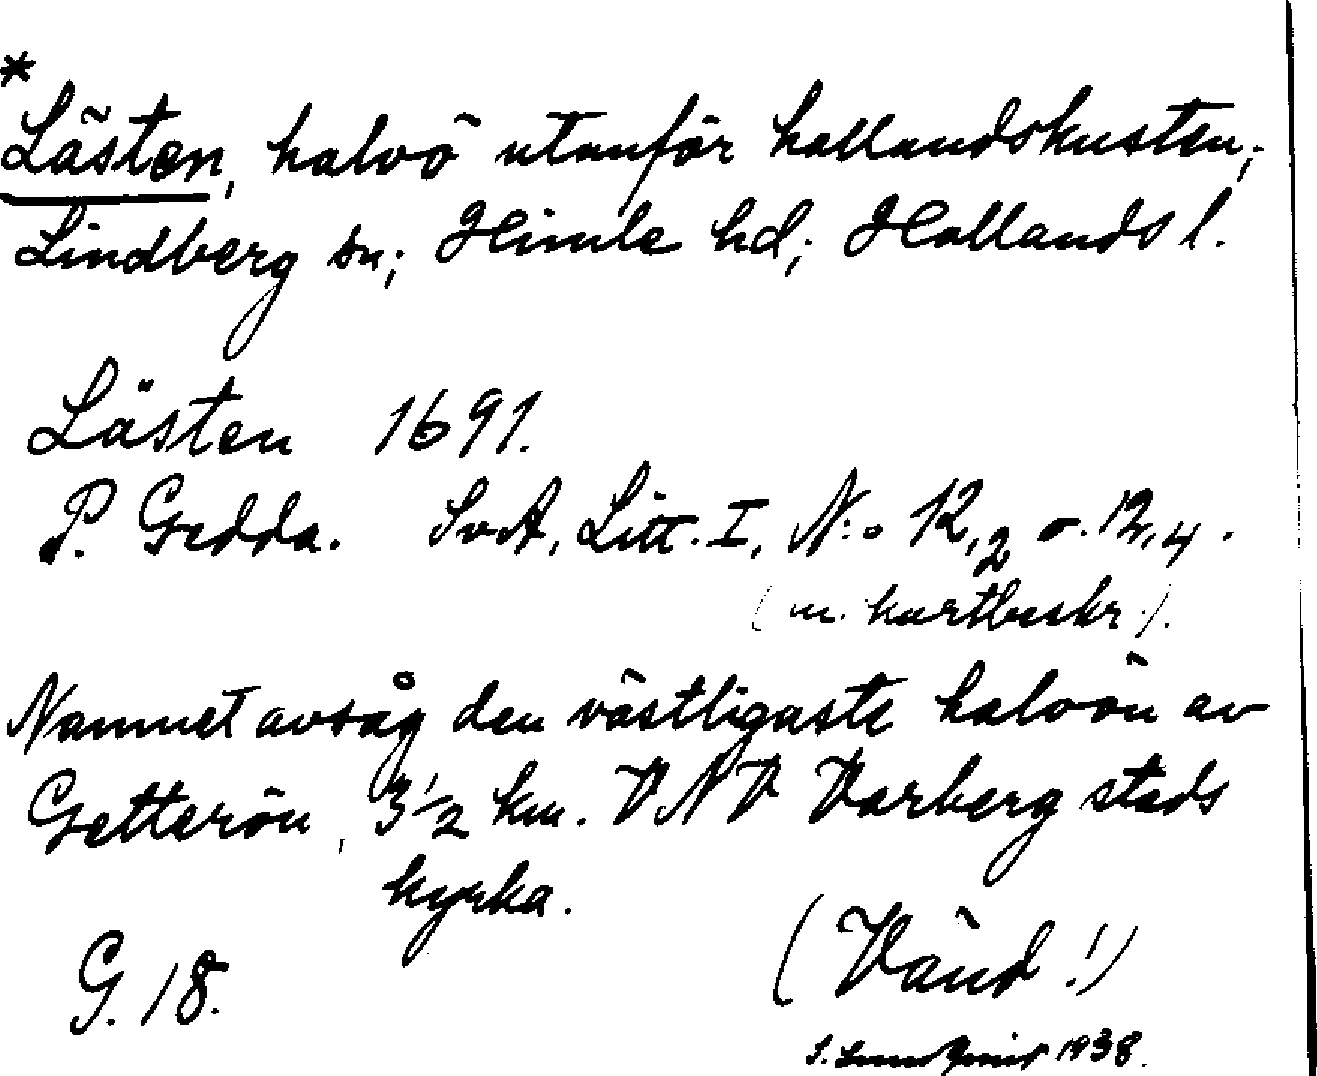 *
Lästen, halvö utanför hallandskusten,
Lindberg sn; Himle hd; Hallands l.
Lästen 1691.
P. Gedda. SvA, Litt. I, N:o 12,2 o. 12,4.
(m. kartbeskr.).
Namnet avsåg den västligaste halvön av
Getterön, 3 1/2 km. VNV Varberg stads
kyrka.
G. 18.
(Vänd!)
1938.